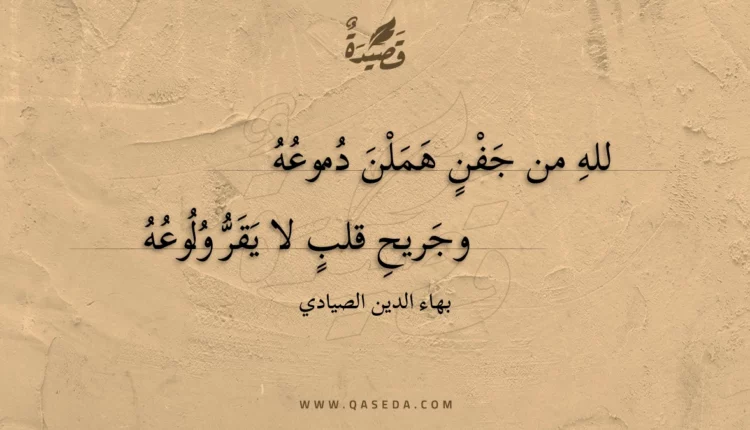 قَصِيدَةٌ
للهِ من جَفْنٍ هَمَلْنَ دُموعُهُ
وجَريحِ قلبٍ لا يَقَرُّ وُلُوعُهُ
بهاء الدين الصيادي
WWW.QASEDA.COM